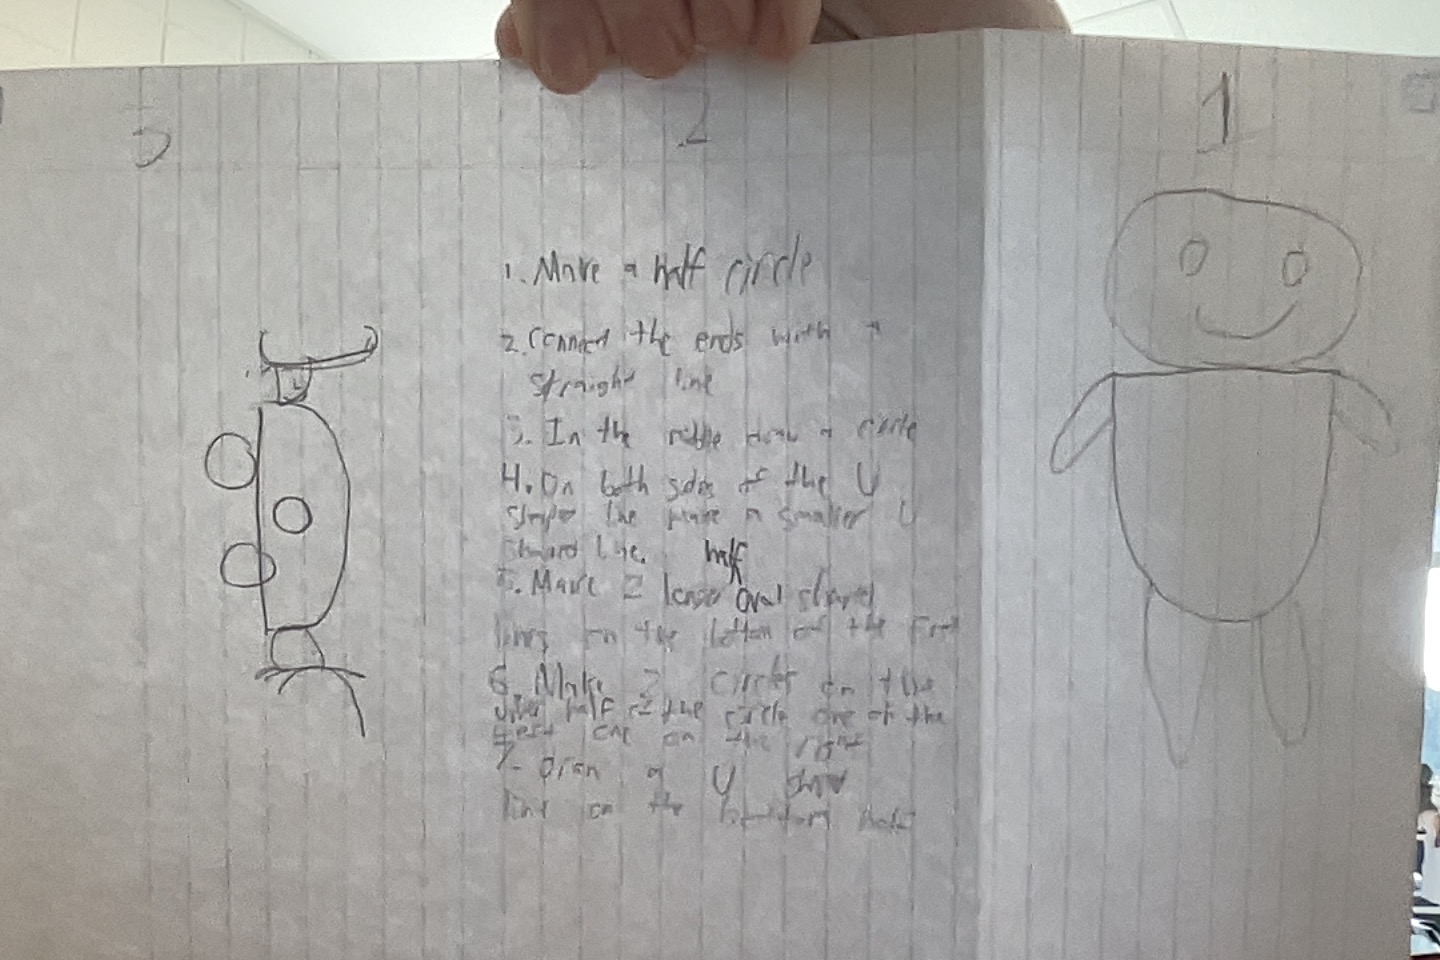 3 2 1
1. Make a half circle
2. Connect the ends with a
straight line
3. In the middle draw a circle
4. On both sides of the U
shape line make a smaller U
shaped line. half
5. Make 2 oval shaped
lines on the bottom of the
6. Make 2 circles on the
half of the circle one on the
one on the right
7. Draw a U
line on the bottom half